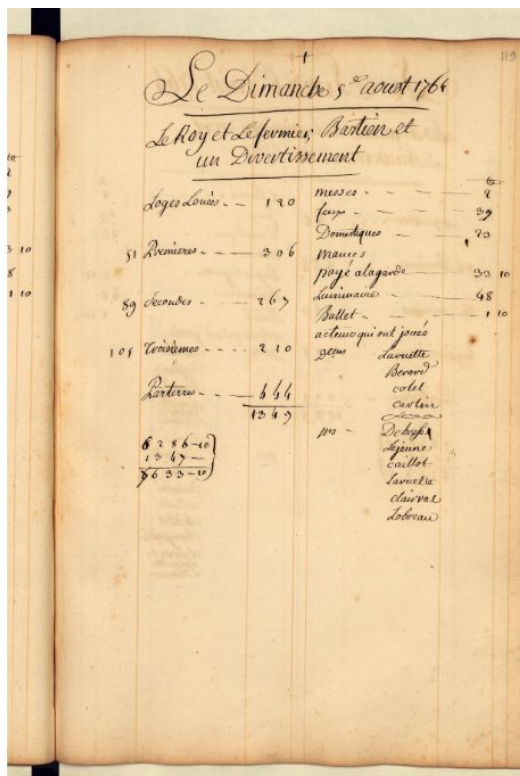 119
Le Dimanche 5 aoust 1764
Le Roy et Le fermier, Bastien et
un Divertissement
Loges Louées - - 120
51 Premieres - - - - 306
89 Secondes - - 267
105 Troisiemes - - - - 210
Parterres - - - 444
1347
6286-10
1347-
7633-10
messes - - - 2
feux - - - 39
Domestiques - 23
Mances
payé a la garde - 33 10
Luminaire - - 48
Ballet - - - 1 10
acteurs qui ont joués
Laruette
Berard
colet
carlin
Mrs - Dehesse
Lejeune
caillot
Laruette
clairval
Lobreau
10
8
10